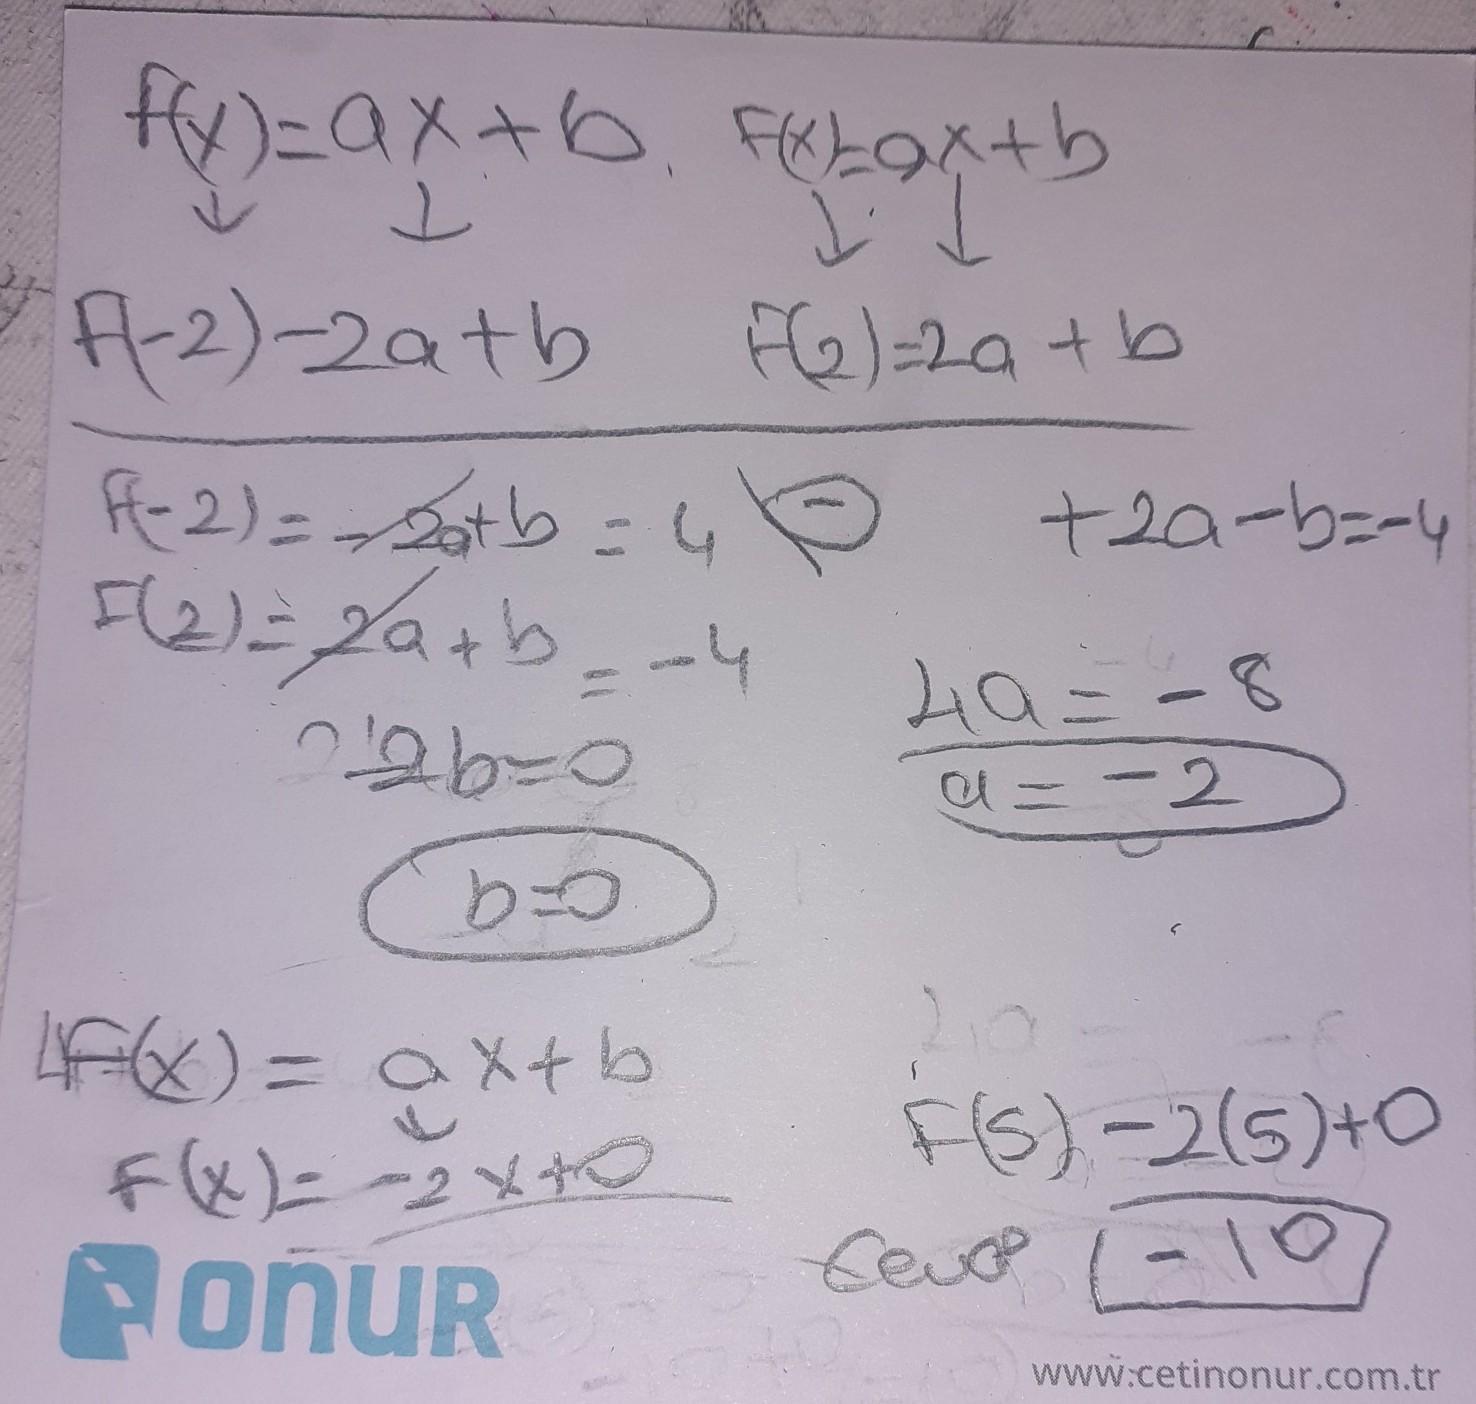 f(x)=ax+b. F(x)=ax+b
f(-2)-2a+b F(2)=2a+b
f(-2)=-2a+b=4 - +2a-b=-4
F(2)=2a+b=-4
4a=-8
2b=0
a=-2
b=0
F(x)=ax+b
F(5)-2(5)+0
F(x)=-2x+0
Cevap -10
onur
www.cetinonur.com.tr